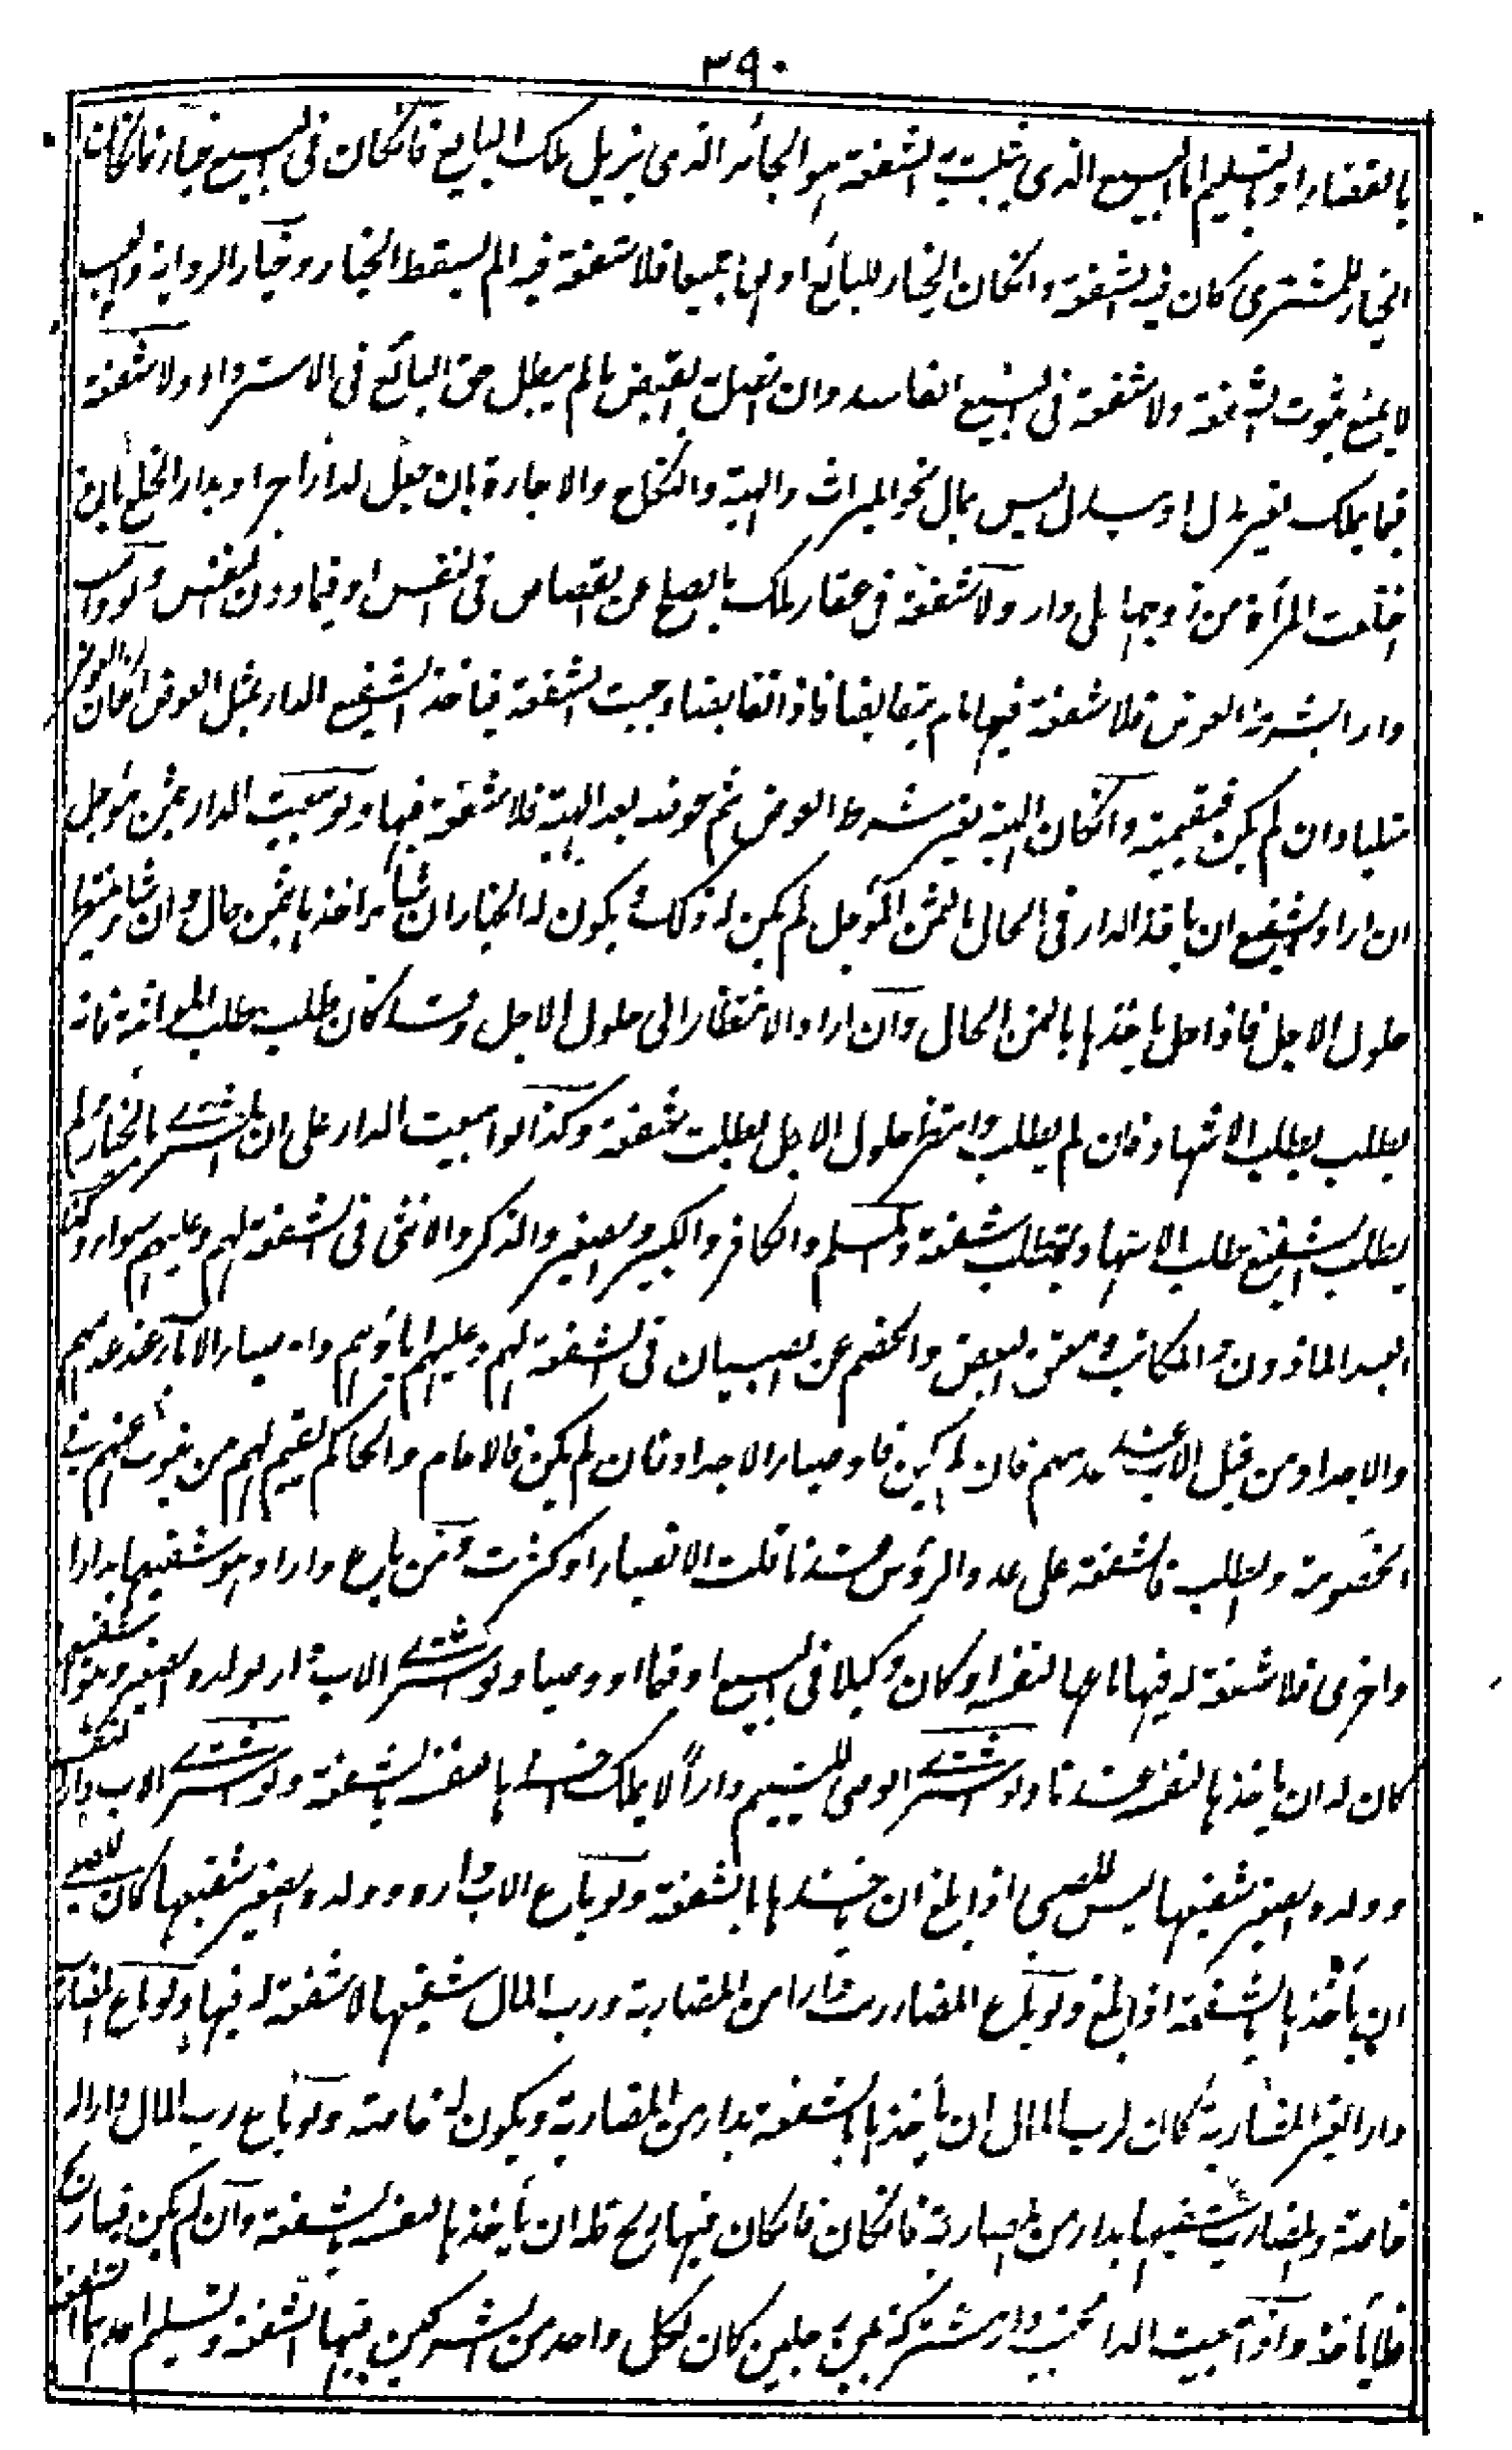 ٣٩٠
بالقضاء او بالتسليم اما البيع الذي يثبت به الشفعة هو الجائز الذي يزيل ملك البايع فانكان في البيع خيار فانكان
الخيار للمشتري كان فيه الشفعة وانكان الخيار للبائع او لهما جميعا فلا شفعة فيه مالم يسقط الخيار وخيار الرواية والعيب
لا يمنع ثبوت الشفعة ولا شفعة في البيع الفاسد وان اتصل به القبض مالم يبطل حق البائع في الاسترداد ولا شفعة
فيما يملك بغير بدل او ببدل ليس بمال نحو الميراث والهبة والنكاح والاجارة بان جعل الدار اجرا وبدار الخلع بان
اختلعت المرأة من زوجها على دار ولا شفعة في عقار ملك بالصلح عن القصاص في النفس او فيما دون النفس ولو وهب
دارا بشرط العوض فلا شفعة فيها مالم يتقابضا فاذا تقابضا وجبت الشفعة فيأخذ الشفيع الدار بمثل العوض انكان العوض
مثليا وان لم يكن فبقيمته وانكان الهبة بغير شرط العوض ثم عوضه بعد الهبة فلا شفعة فيها ولو بيعت الدار بثمن مؤجل
ان اراد الشفيع ان يأخذ الدار في الحال بالثمن المؤجل لم يكن له ذلك ويكون له الخيار ان شاء اخذ بالثمن حال وان شاء انتظر
حلول الاجل فاذا حل يأخذها بالثمن الحال وان اراد الانتظار الى حلول الاجل وقد كان طلب طلب المواثبة فانه
يطلب طلب الاشهاد فان لم يطلب وانتظر حلول الاجل بطلت شفعته وكذا لو بيعت الدار على ان المشتري بالخيار ولم
يطلب الشفيع طلب الاشهاد بطلت شفعته والمسلم والكافر والكبير والصغير والذكر والانثى في الشفعة لهم وعليهم سواء وكذا
العبد الماذون والمكاتب ومعتق البعض والخصم عن الصبيان في الشفعة لهم وعليهم اباؤهم واوصياء الاباء عند عدمهم
والاجداد من قبل الاب عند عدمهم فان لم يكن فاوصياء الاجداد فان لم يكن فالامام والحاكم يقيم لهم من ينوب عنهم في
الخصومة والطلب فالشفعة على عدد الرؤس عندنا قلت الانصباء او كثرت ومن باع دارا وهو شفيعها بدار
اخرى فلا شفعة له فيها باعها لنفسه او كان وكيلا في البيع او قيما او وصيا ولو اشترى الاب دارا لولده الصغير وهو شفيعها
كان له ان يأخذها لنفسه عندنا ولو اشترى الوصي لليتيم دارا لا يملك اخذها لنفسه بالشفعة ولو اشترى الاب دارا لنفسه
وولده الصغير شفيعها ليس للصبي اذا بلغ ان يأخذها بالشفعة ولو باع الاب داره وولده الصغير شفيعها كان للصبي
ان يأخذها بالشفعة اذا بلغ ولو باع المضارب دارا من المضاربة ورب المال شفيعها لا شفعة له فيها ولو باع المضارب
دارا لغير المضاربة كان لرب المال ان يأخذها بالشفعة بدار من المضاربة ويكون له خاصة ولو باع رب المال دارا له
خاصة والمضارب شفيعها بدار من المضاربة فانكان فانكان فيها ربح فله ان يأخذها لنفسه بالشفعة وان لم يكن فيها ربح
فلا يأخذ واذا بيعت الدار بجنب دار مشتركة بين رجلين كان لكل واحد من الشريكين فيها الشفعة وتسليم احدهما